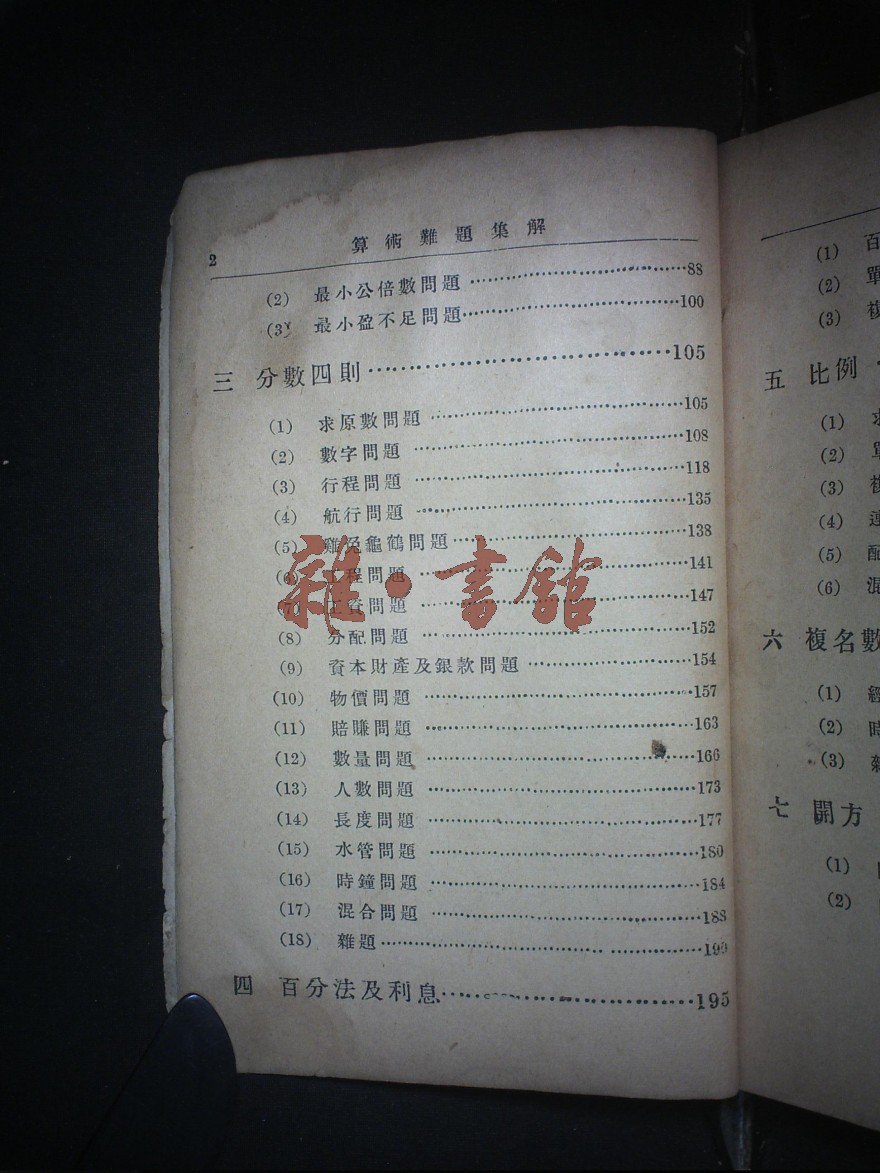 2 算術難題集解
(2) 最小公倍數問題 88
(3) 最小盈不足問題 100
三 分數四則 105
(1) 求原數問題 105
(2) 數字問題 108
(3) 行程問題 118
(4) 航行問題 135
(5) 雞兔龜鶴問題 138
(6) 工程問題 141
(7) 工資問題 147
(8) 分配問題 152
(9) 資本財產及銀款問題 154
(10) 物價問題 157
(11) 賠賺問題 163
(12) 數量問題 166
(13) 人數問題 173
(14) 長度問題 177
(15) 水管問題 180
(16) 時鐘問題 184
(17) 混合問題 188
(18) 雜題 190
四 百分法及利息 195
雜·書館
(1) 百
(2) 單
(3) 複
五 比例
(1) 求
(2) 單
(3) 複
(4) 連
(5) 配
(6) 混
六 複名數
(1) 經
(2) 時
(3) 雜
七 開方
(1)
(2)